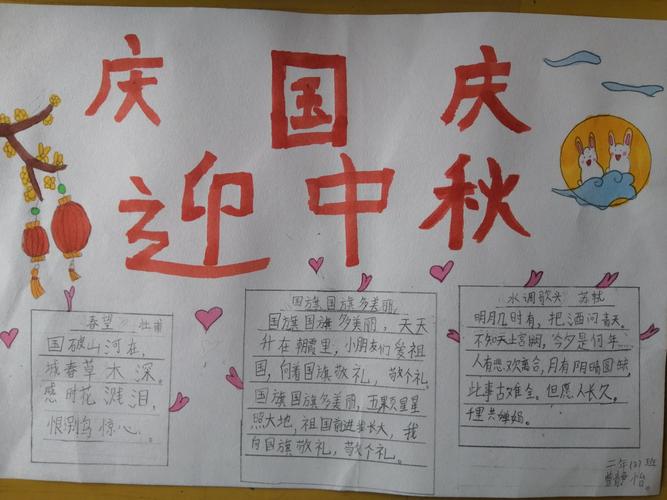 庆国庆
迎中秋
春望 杜甫
国破山河在,
城春草木深。
感时花溅泪,
恨别鸟惊心。
国旗国旗多美丽
国旗国旗多美丽,天天
升在朝霞里,小朋友们爱祖
国,向着国旗敬礼,敬个礼。
国旗国旗多美丽,五颗星星
照大地,祖国前进我长大,我
向国旗敬礼,敬个礼。
水调歌头 苏轼
明月几时有,把酒问青天。
不知天上宫阙,今夕是何年…
人有悲欢离合,月有阴晴圆缺,
此事古难全。但愿人长久,
千里共婵娟。
二年(2)班
静怡。